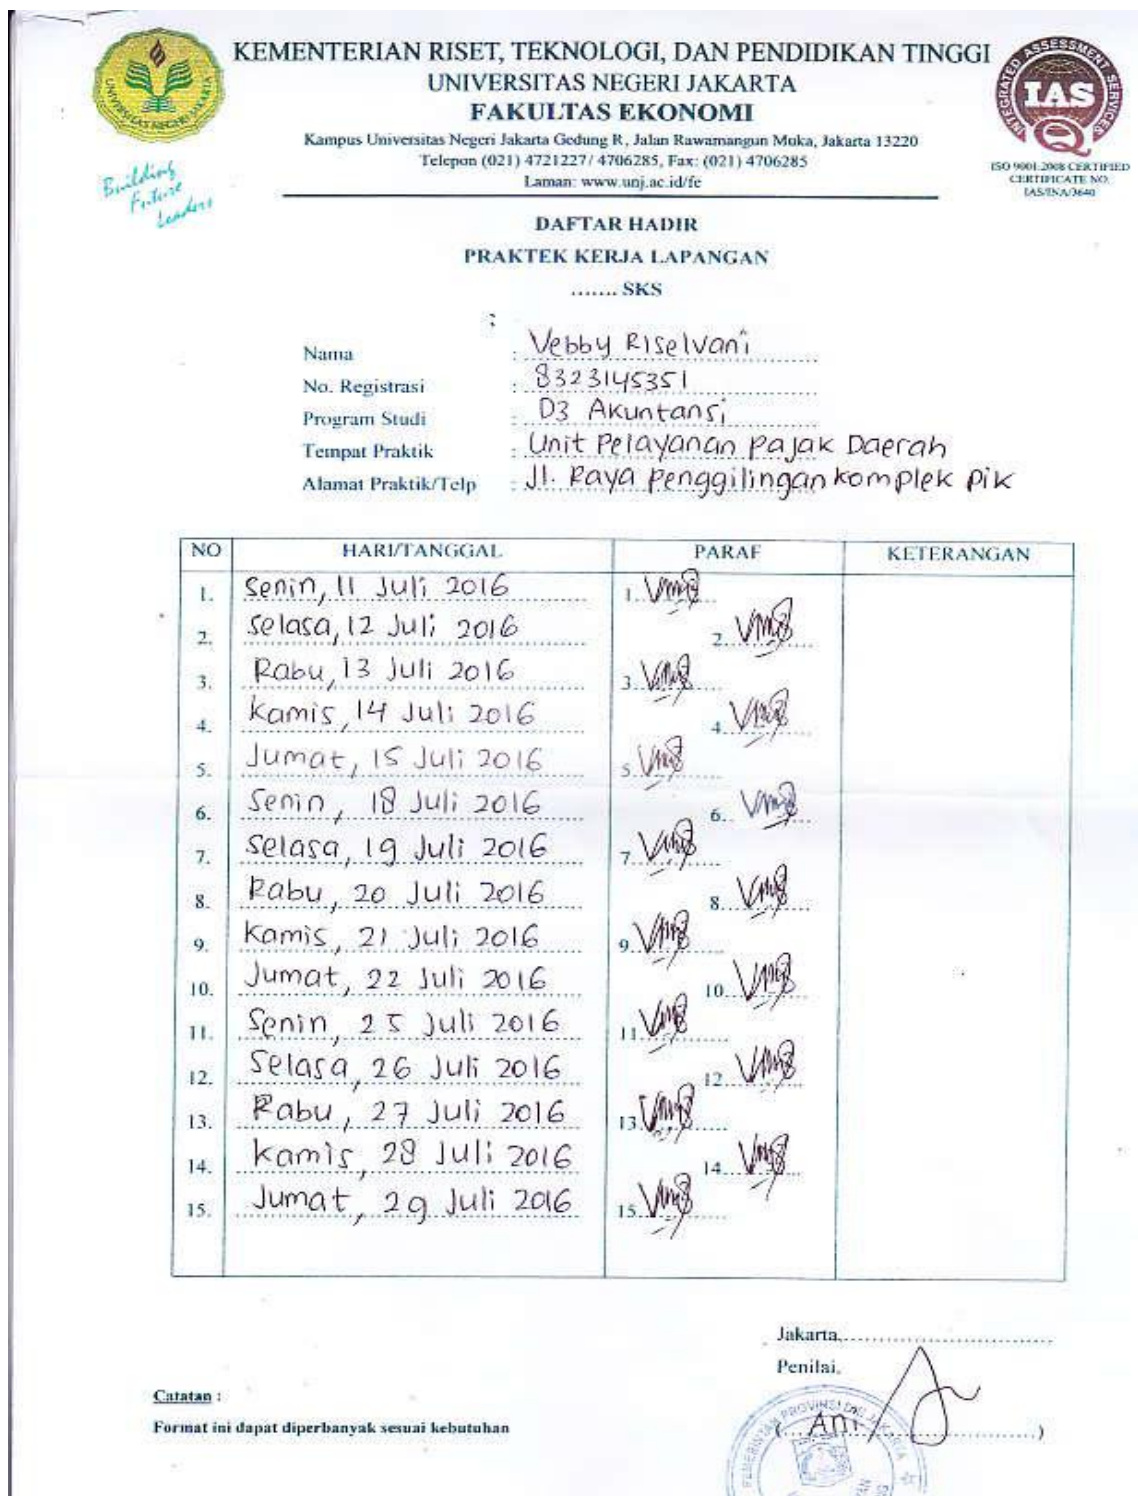 KEMENTERIAN RISET, TEKNOLOGI, DAN PENDIDIKAN TINGGI
UNIVERSITAS NEGERI JAKARTA
FAKULTAS EKONOMI
Kampus Universitas Negeri Jakarta Gedung R, Jalan Rawamangun Muka, Jakarta 13220
Telepon (021) 4721227/ 4706285, Fax: (021) 4706285
Laman: www.unj.ac.id/fe
UNIVERSITAS NEGERI JAKARTA
Building
Future
Leaders
INTEGRATED ASSESSMENT SERVICES
IAS
ISO 9001:2008 CERTIFIED
CERTIFICATE NO.
IAS/INA/3640
DAFTAR HADIR
PRAKTEK KERJA LAPANGAN
....... SKS
Nama : Vebby Riselvani
No. Registrasi : 8323145351
Program Studi : D3 Akuntansi
Tempat Praktik : Unit Pelayanan Pajak Daerah
Alamat Praktik/Telp : Jl. Raya Penggilingan komplek pik
NO HARI/TANGGAL PARAF KETERANGAN
1. Senin, 11 Juli 2016 1.
2. Selasa, 12 Juli 2016 2.
3. Rabu, 13 Juli 2016 3.
4. Kamis, 14 Juli 2016 4.
5. Jumat, 15 Juli 2016 5.
6. Senin, 18 Juli 2016 6.
7. Selasa, 19 Juli 2016 7.
8. Rabu, 20 Juli 2016 8.
9. Kamis, 21 Juli 2016 9.
10. Jumat, 22 Juli 2016 10.
11. Senin, 25 Juli 2016 11.
12. Selasa, 26 Juli 2016 12.
13. Rabu, 27 Juli 2016 13.
14. Kamis, 28 Juli 2016 14.
15. Jumat, 29 Juli 2016 15.
Jakarta,
Penilai,
Catatan :
Format ini dapat diperbanyak sesuai kebutuhan
(Ani)